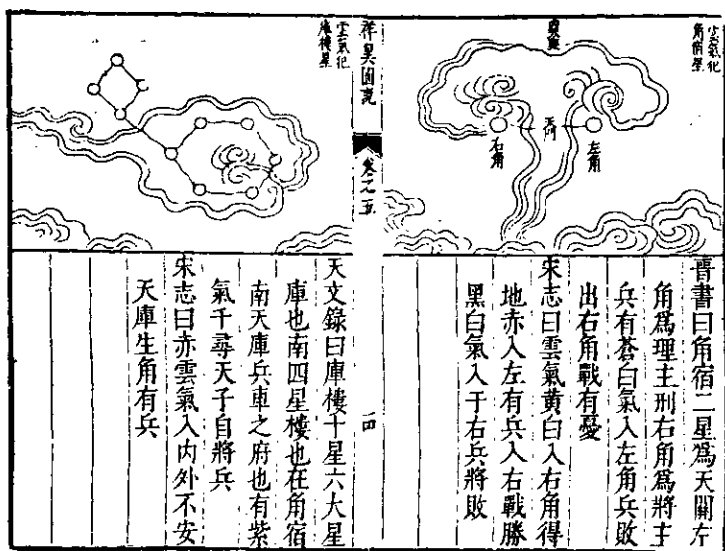 雲氣犯
角宿星
左角
天門
右角
晉書曰角宿二星爲天關左
角爲理主刑右角爲將主
兵有蒼白氣入左角兵敗
出右角戰有憂
宋志曰雲氣黃白入右角得
地赤入左有兵入右戰勝
黑白氣入于右兵將敗
祥異圖說
卷之五
一四
雲氣犯
庫樓星
天文錄曰庫樓十星六大星
庫也南四星樓也在角宿
南天庫兵車之府也有紫
氣千尋天子自將兵
宋志曰赤雲氣入內外不安
天庫生角有兵